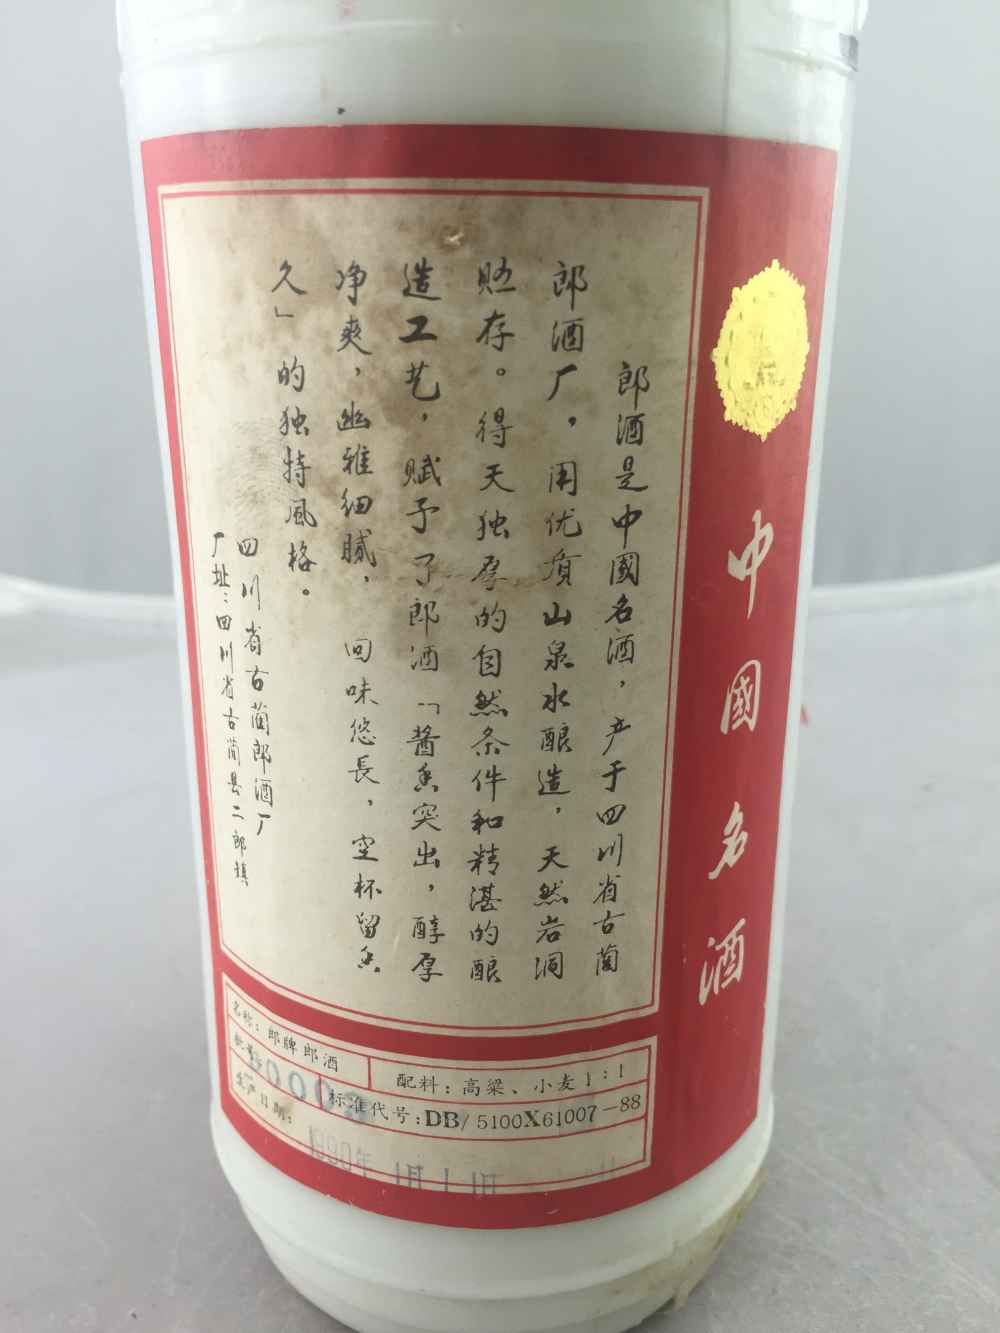 中國名酒
郎酒是中國名酒，产于四川省古蔺
郎酒厂，用优质山泉水酿造，天然岩洞
贮存。得天独厚的自然条件和精湛的酿
造工艺，赋予了郎酒「酱香突出，醇厚
净爽，幽雅细腻，回味悠長，空杯留香
久」的独特風格。
四川省古蔺郎酒厂
厂址：四川省古蔺县二郎镇
名称：郎牌郎酒
配料：高粱、小麦1：1
批号：
标准代号：DB/5100X61007-88
生产日期：
1990年